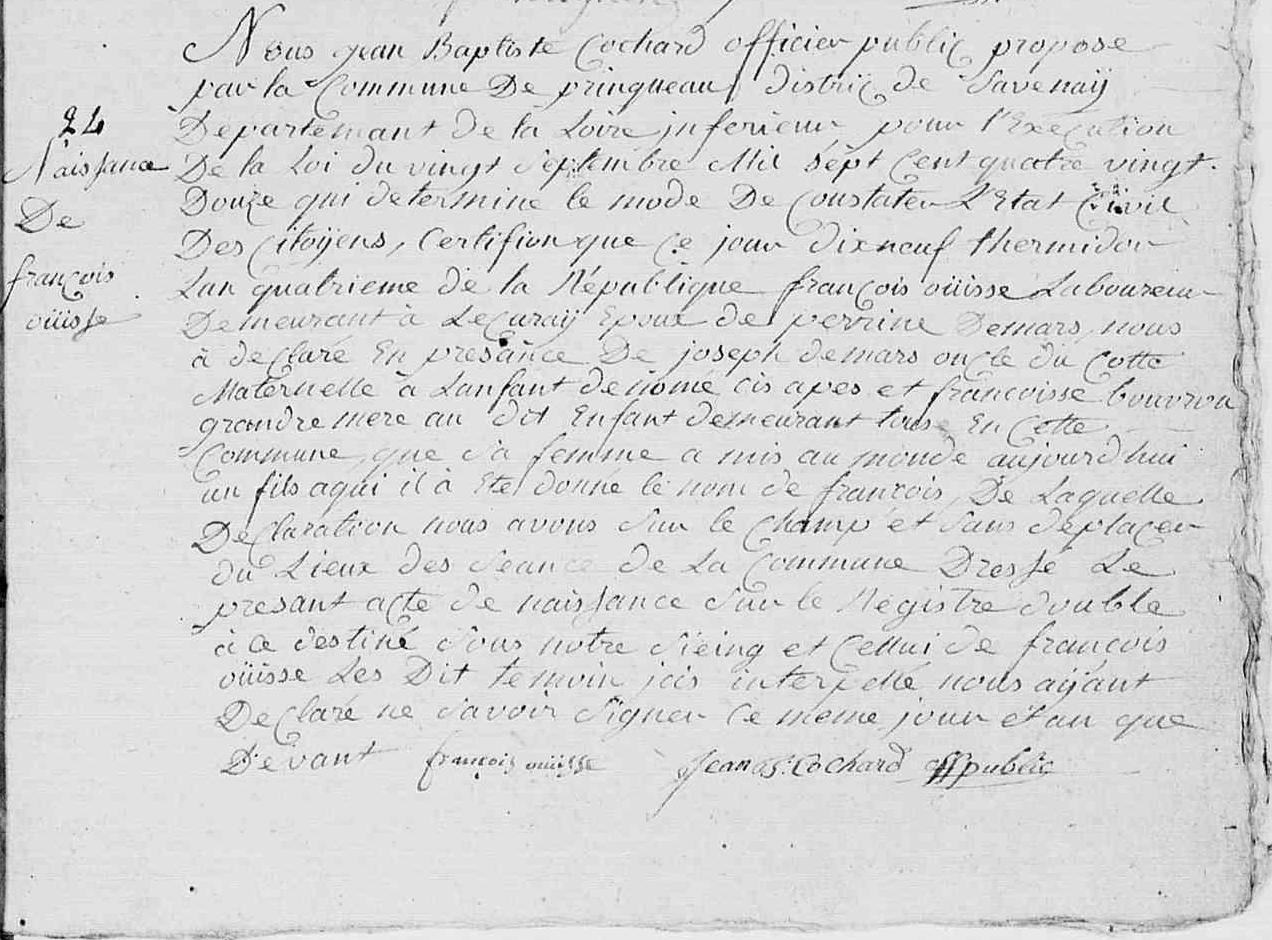 Nous jean Baptiste Cochard officier public propose
par la Commune De prinqueau distric de Savenaÿ
24
Departemant de la Loire jnferieur pour l'Execution
Naissance
De la Loi du vingt Septembre Mil sept Cent quatre vingt
Douze qui determine le mode De Constater L'Etat Civil
De
Des Citoÿens, Certifion que Ce jour dixneuf thermidor
françois
Lan quatrieme de la République françois oüisse Laboureur
oüisse
Demeurant à Lecuraÿ Epoux de perrine Demars nous
à declaré En presance De joseph demars oncle du Cotte
Maternelle à Lanfant denomé cis apes et francoisse bouvron
grandre mere au dit Enfant demeurant tous En Cette
Commune, que Sa femme a mis au monde aujourd'hui
un fils aqui il à Eté donné le nom de françois, De Laquelle
Declaration nous avons Sur le Champ et Sans deplacer
du Lieux des Seance de La Commune Dressé Le
presant acte de naissance Sur le Régistre double
à ce destiné Sous notre Sieing et Cellui de françois
oüisse Les Dit temoin jcis interpellé nous aÿant
Declaré ne Savoir Signer Ce meme jour et an que
Devant françois ouisse Jean Bs: Cochard off public